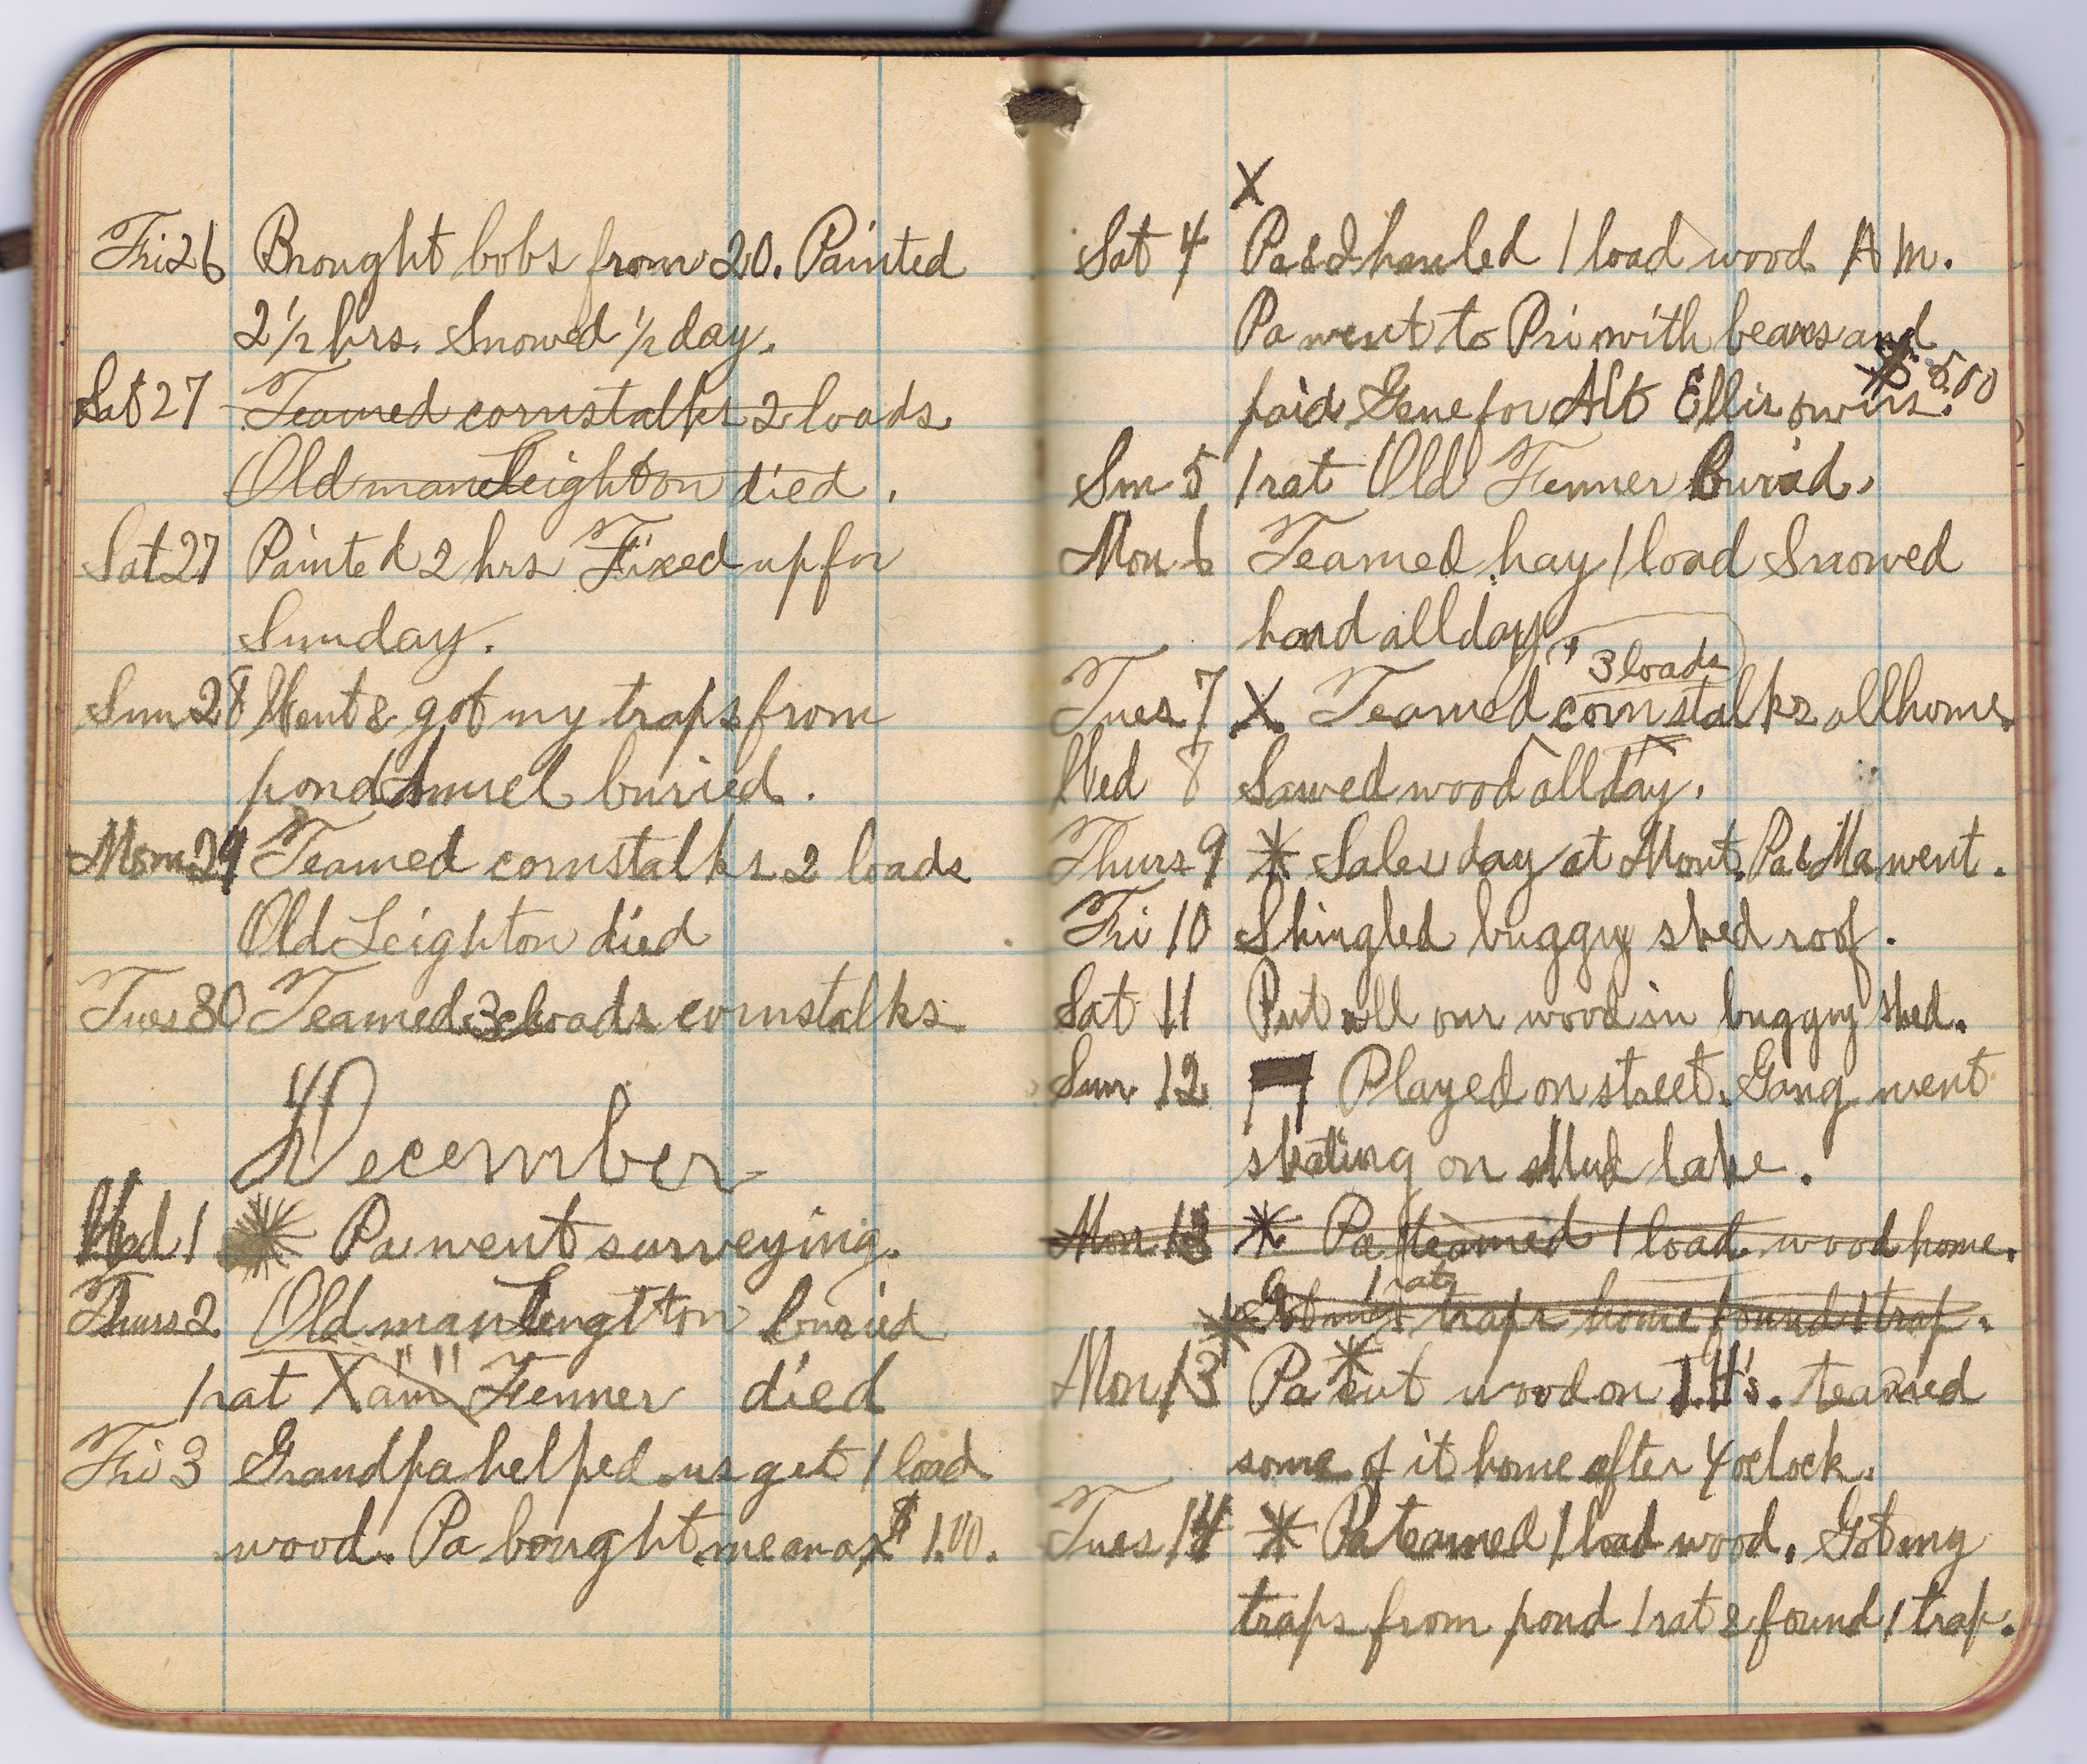 Fri 26 Brought bobs from 20. Painted
2 1/2 hrs. Snowed 1/2 day.
Sat 27 Teamed cornstalks 2 loads
Old man Leighton died.
Sat 27 Painted 2 hrs Fixed up for
Sunday.
Sun 28 Went & got my traps from
pond buried.
Mon 29 Teamed cornstalks 2 loads
Old Leighton died
Tues 30 Teamed 3 loads cornstalks
December
Wed 1 Pa went surveying.
Thurs 2 Old man buried
1 rat X Fenner died
Fri 3 Grandpa helped us get 1 load
wood. Pa bought me an ax $1.00.
X
Sat 4 Pa & I hauled 1 load wood A M.
Pa went to Pri with beaves and
paid Gene for Alt Ellis owins. $5.00
Sun 5 1 rat Old Fenner Buried.
Mon 6 Teamed hay 1 load Snowed
hard all day
3 loads
Tues 7 X Teamed cornstalks all home.
Wed 8 Sawed wood all day.
Thurs 9 * Sales day at Mont. Pa & Ma went.
Fri 10 Shingled buggy shed roof.
Sat 11 Put all our wood in buggy shed.
Sun. 12 Played on street. Gang went
skating on Mud lake.
Mon 13 * Pa teamed 1 load wood home.
1 rat
* Got my traps home found 1 trap.
Mon 13 Pa * cut wood on J.H's. teamed
some of it home after 4 oclock.
Tues 14 * Pa teamed 1 load wood. Got my
traps from pond 1 rat & found 1 trap.